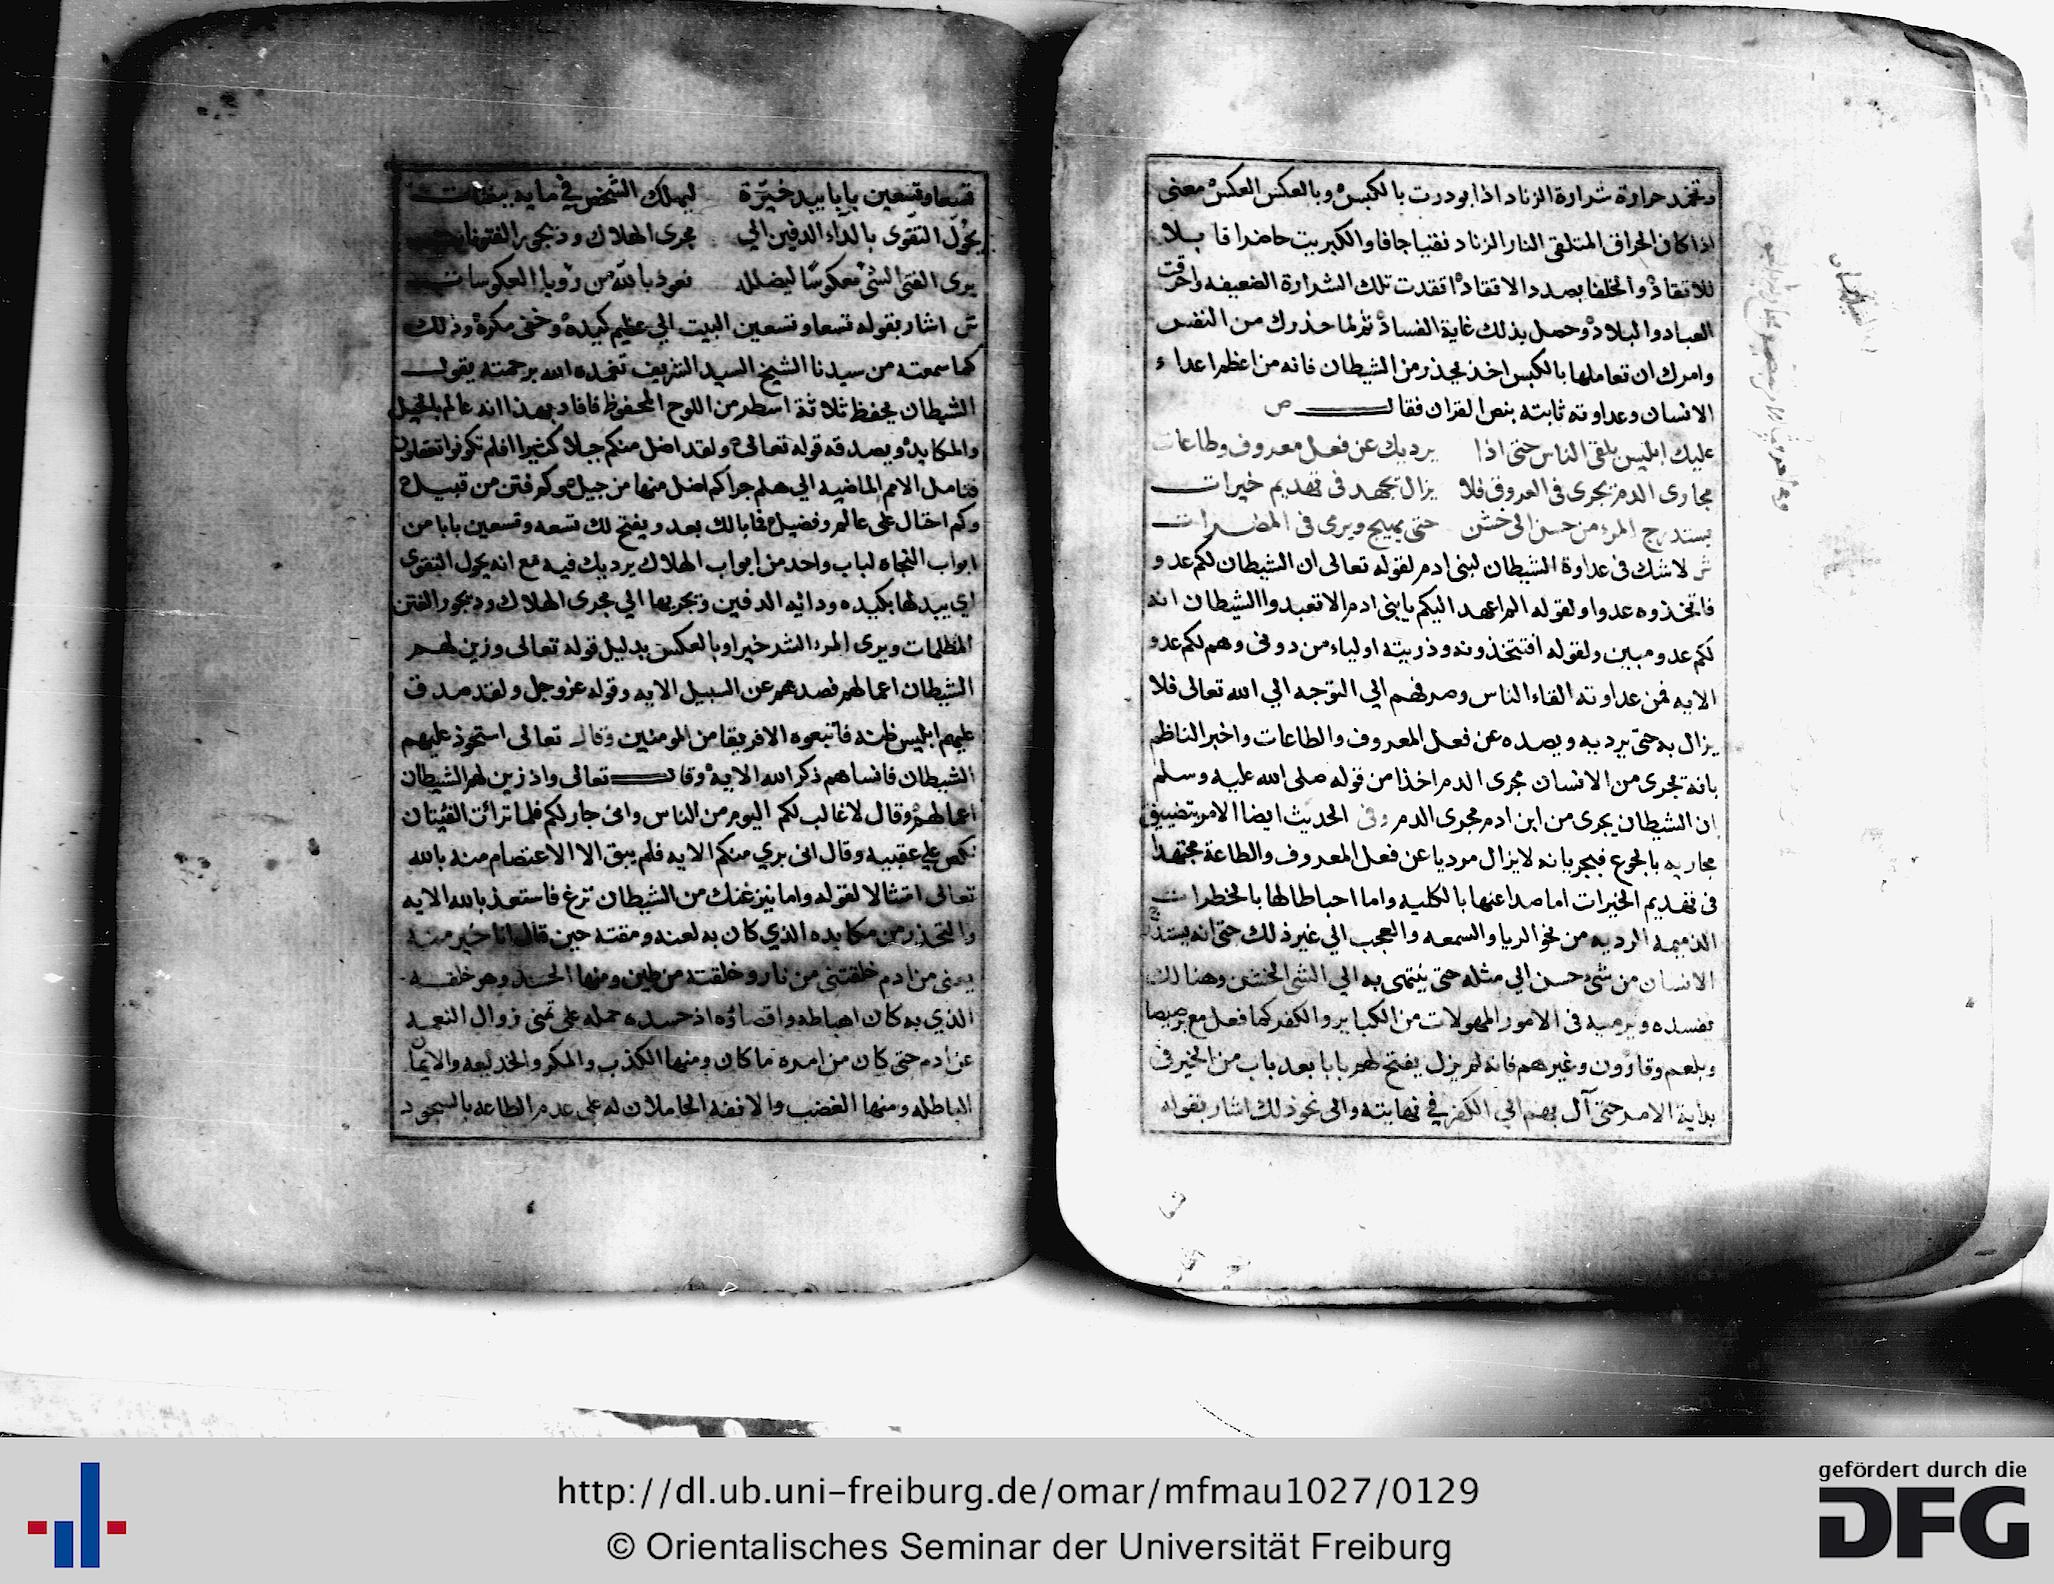 وتخمد حرارة شرارة الزناد اذا بودرت بالكبس وبالعكس العكس معنى
اذا كان الحراق المتلقى النار الزناد نقيا جافا والكبريت حاضرا قابلا
للاتقاد والخلفا بصدد الاتقاد اتقدت تلك الشرارة الضعيفه واحرقت
العباد والبلاد وحصل بذلك غاية الفساد ثم لما حذرك من النفس
وامرك ان تعاملها بالكبس اخذ يحذر من الشيطان فانه من اعظم اعداء
الانسان وعداوته ثابتة بنص القران فقال ص
عليك ابليس يلقى الناس حتى اذا يرديك عن فعل معروف وطاعات
مجارى الدم يجرى فى العروق فلا يزال يجهد فى تهديم خيرات
يستدرج المرء من حسن الى خشن حتى يهيج ويرمى فى المضرات
ش لا شك فى عداوة الشيطان لبنى ادم لقوله تعالى ان الشيطان لكم عدو
فاتخذوه عدوا ولقوله الم اعهد اليكم يا بنى ادم الا تعبدوا الشيطان انه
لكم عدو مبين ولقوله افتتخذونه وذريته اولياء من دونى وهم لكم عدو
الايه فمن عداوته القاء الناس وصرفهم الي التوجه الي الله تعالى فلا
يزال به حتى يرديه ويصده عن فعل المعروف والطاعات واخبر الناظم
بانه يجرى من الانسان مجرى الدم اخذا من قوله صلى الله عليه وسلم
ان الشيطان يجرى من ابن ادم مجرى الدم وفى الحديث ايضا الامر بتضييق
مجاريه بالجوع فيجريانه لا يزال مرديا عن فعل المعروف والطاعة مجتهدا
فى تهديم الخيرات اما صدا عنها بالكليه واما احباطا لها بالخطرات
الذميمه الرديه من نحو الريا والسمعه والعجب الي غير ذلك حتى انه يستدرج
الانسان من شىء حسن الي مثله حتى ينتهى به الي الشى الخشن وهنالك
يفسده ويرميه فى الامور المهولات من الكباير والكفر كما فعل مع برصيصا
وبلعم وقارون وغيرهم فانه لم يزل يفتح لهم بابا بعد باب من الخير فى
بداية الامر حتى آل بهم الي الكفر في نهايته والى نحو ذلك اشار بقوله
تسعا
تسعا وتسعين بابا يبد خيّرة ليهلك الشخص في
يحوّل التقوى بالداء الدفين الي مجرى الهلاك وديجور الفتو
يرى الفتى الشىء معكوسا ليضلله نعوذ بالله من رؤيا العكوسات
ش اشار بقوله تسعا وتسعين البيت الي عظيم كيده وخفى مكره وذلك
كما سمعته من سيدنا الشيخ السيد الشريف تغمده الله برحمته يقول
الشيطان يحفظ ثلاثة اسطر من اللوح المحفوظ فافاد بهذا انه عالم بالحيل
والمكايد ويصدقه قوله تعالى ولقد اضل منكم جبلا كثيرا افلم تكونوا تعقلون
فتامل الامم الماضيه الي هلم جرا كم اضل منها من جيل وكم فتن من قبيل
وكم احتال على عالم وفضيل فما بالك بعد ويفتح لك تسعه وتسعين بابا من
ابواب النجاه لباب واحد من ابواب الهلاك يرديك فيه مع انه يحول التقوى
اي يبدلها بكيده ودائه الدفين ويجريها الي مجرى الهلاك وديجور الفتن
المظلمات ويرى المرء الشر خيرا وبالعكس بدليل قوله تعالى وزين لهم
الشيطان اعمالهم فصدهم عن السبيل الايه وقوله عز وجل ولقد صدق
عليهم ابليس ظنه فاتبعوه الا فريقا من المومنين وقال تعالى استحوذ عليهم
الشيطان فانساهم ذكر الله الايه وقال تعالى واذ زين لهم الشيطان
اعمالهم وقال لا غالب لكم اليوم من الناس وانى جار لكم فلما ترائت الفئتان
نكص علي عقبيه وقال انى بري منكم الايه فلم يبق الا الاعتصام منه بالله
تعالى امتثالا لقوله واما ينزغنك من الشيطان نزغ فاستعذ بالله الايه
والتحذر من مكايده الذي كان به لعنه ومقته حين قال انا خير منه
يعنى من ادم خلقتنى من نار وخلقته من طين ومنها الحسد وهو خلقه
الذي به كان اهباطه واقصاؤه اذ حسده حمله على تمنى زوال النعمه
عن ادم حتى كان من امره ما كان ومنها الكذب والمكر والخديعه والايمان
الباطله ومنها الغضب والانفه الحاملان له على عدم الطاعه بالسجود
http://dl.ub.uni-freiburg.de/omar/mfmau1027/0129
© Orientalisches Seminar der Universität Freiburg
gefördert durch die
DFG